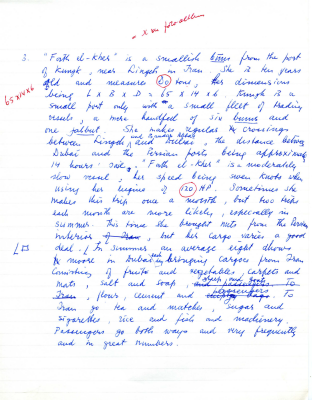 3. "Fath el-Kher" is a smallish bum from the port
of Kungk, near Lingeh in Iran. She is ten years
old and measures 20 tons, her dimensions
65x14x6
being L x B x D = 65 x 14 x 6. Kungk is a
small port only with a small fleet of trading
vessels, a mere handful of six bums and
one jalbut. She makes regular crossings
between Lingeh and Dubai - the distance between
Dubai and the Persian ports being approximately
14 hours. "Fath el-Kher" is a moderately
slow vessel, her speed being seven knots when
using her engine of 120 HP. Sometimes she
makes this trip once a month, but two trips
each month are more likely, especially in
summer. This time she brought nuts from the Persian
interior, but her cargo varies a good
deal. In summer an average eight dhows
moor in Dubai bringing cargoes from Iran
consisting of fruits and vegetables, carpets and
mats, salt and soap,
passengers
Iran, flour, cement and bags. To
Iran go tea and matches, sugar and
cigarettes, rice and fish and machinery.
Passengers go both ways and very frequently
and in great numbers.